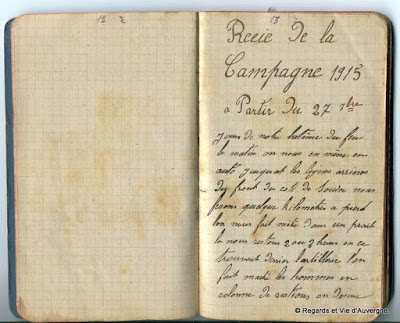 12
13
Recie De la
Campagne 1915
a Partir Du 27 7bre
jour de notre batême du feu
le matin on nous en mène en
auto jusqu'at les lignes arrieres
du front du coté de nous
fesons quelque kilometres a pied
lon nous fait mètre dans un prait
la nous restons 2 ou 3 heures en ce
trouvant derrier lartillerie lon
fait les hommes en
colonne de sections on donne
© Regards et Vie d'Auvergne.